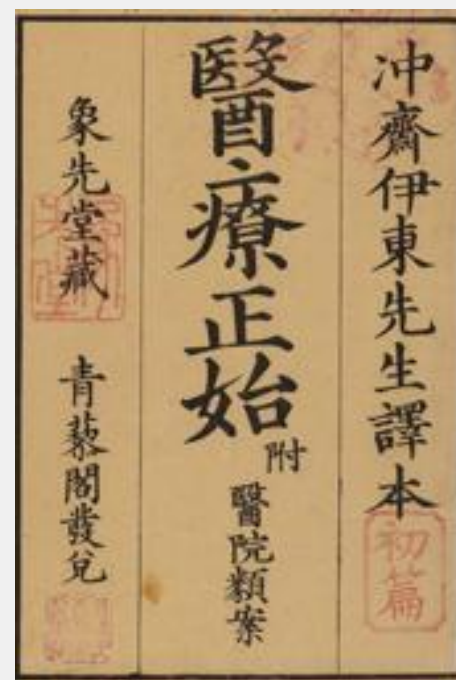 冲齋伊東先生譯本
初篇
醫療正始
附
醫院類案
象先堂藏
青藜閣發兌